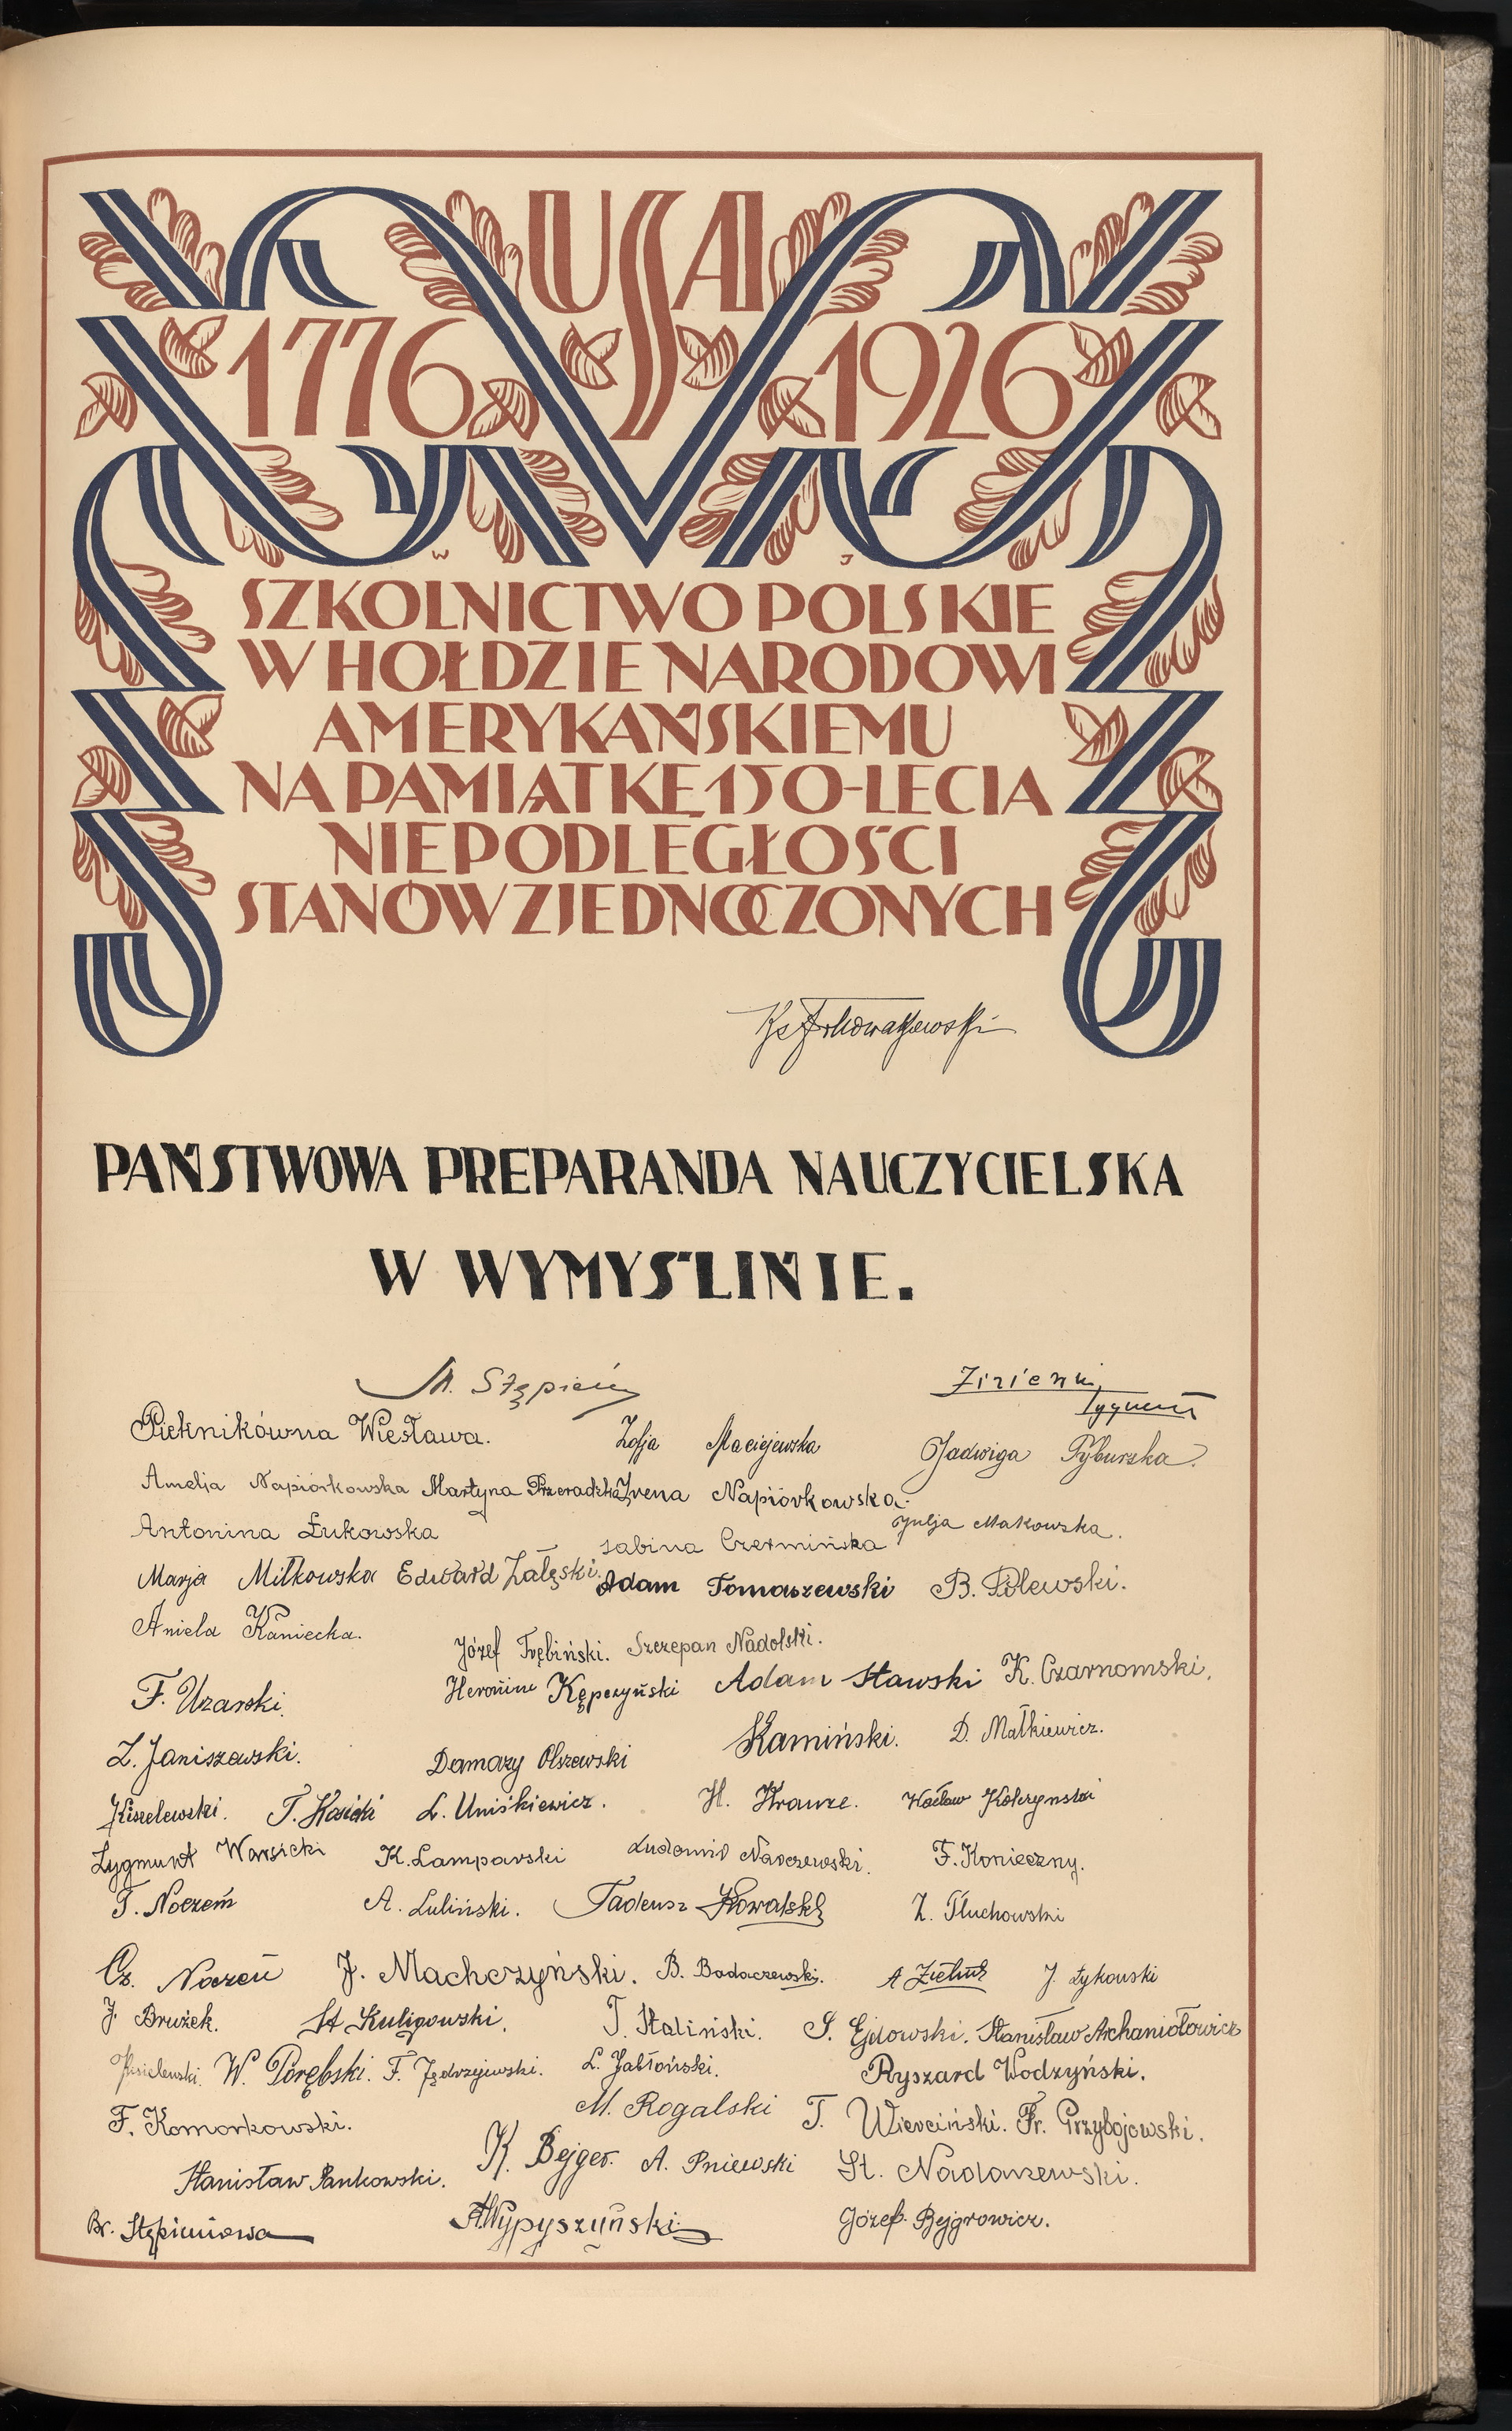 USA
1776 1926
W J
SZKOLNICTWO POLSKIE
W HOŁDZIE NARODOWI
AMERYKAŃSKIEMU
NA PAMIĄTKĘ 150-LECIA
NIEPODLEGŁOŚCI
STANÓW ZJEDNOCZONYCH
PAŃSTWOWA PREPARANDA NAUCZYCIELSKA
W WYMYŚLINIE.
M. Stępień
Zygmunt
Pietnikówna Wiesława. Zofja Maciejewska Jadwiga Pyburska.
Amelja Napiórkowska Martyna Przeradzka Irena Napiórkowska.
Antonina Łukowska Sabina Czermińska Julja Makowska.
Marja Miłkowska Edward Załęski. Adam Tomaszewski B. Polewski.
Aniela Kaniecka. Józef Trębiński. Szczepan Nadolski.
F. Uzarski. Kępczyński Adam Stawski K. Czarnomski.
Z. Janiszewski. Damazy Olszewski Kamiński. D. Małkiewicz.
Kiszelewski. T. Kosicki L. Uniśkiewicz. H. Krauze. Wacław Kolczyński
Zygmunt Warsicki K. Lamparski Ludomir F. Konieczny.
T. Noczeń A. Luliński. Tadeusz Kowalski Z. Płuchowski
Cz. Noczeń J. Machczyński. B. Badaczewski. A J. Łykowski
J. Brużek. St Kuligowski. T. Staliński. S. Ejdowski. Stanisław Archaniołowicz
W. Porębski. F. Jędrzejewski. L. Jabłoński. Ryszard Wodzyński.
F. Komorkowski. M. Rogalski T. Wierciński. Fr. Przybojewski.
Stanisław Pankowski. K. Bejger. A. Pniewski St. Nadanzewski.
Br. Stępieniowa A. Wypyszyński Józef Bejgrowicz.